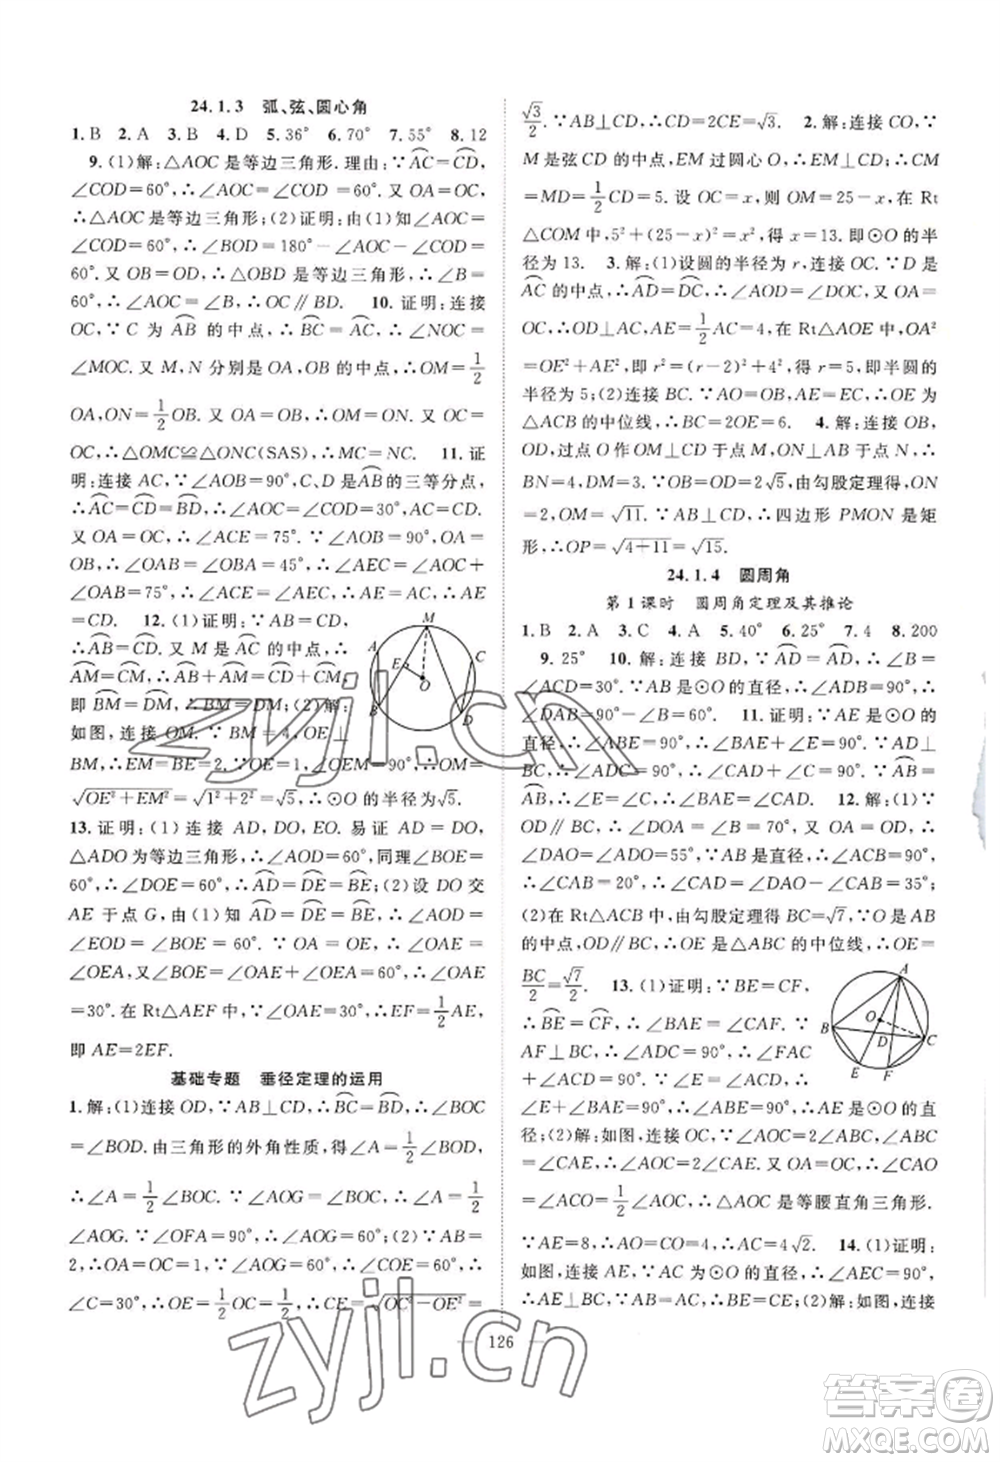 24.1.3 弧、弦、圆心角
1.B 2.A 3.B 4.D 5.36° 6.70° 7.55° 8.12
9.(1)解:△AOC是等边三角形.理由:∵AC=CD,
∠COD=60°,∴∠AOC=∠COD=60°.又∵OA=OC,
∴△AOC是等边三角形;(2)证明:由(1)可知∠AOC=
∠COD=60°,∴∠BOD=180°-∠AOC-∠COD=
60°.又∵OB=OD,∴△OBD是等边三角形,∴∠B=
60°,∴∠AOC=∠B,∴OC∥BD. 10.证明:连接
OC,∵C为AB的中点,∴BC=AC,∴∠NOC=
∠MOC.又∵M,N分别是OA,OB的中点,∴OM=1/2
OA,ON=1/2OB.又∵OA=OB,∴OM=ON.又OC=
OC,∴△OMC≌△ONC(SAS),∴MC=NC. 11.证
明:连接AC,∵∠AOB=90°,C、D是AB的三等分点,
∴AC=CD=BD,∴∠AOC=∠COD=30°,∴AC=CD.
又∵OA=OC,∴∠OAE=75°.∵∠AOB=90°,OA=
OB,∴∠OAB=∠OBA=45°,∴∠AEC=∠AOC+
∠OAB=75°,∴∠ACE=∠AEC,∴AE=AC,∴AE
=CD. 12.(1)证明:∵AB=CD,
∴AB=CD.又∵M是AC的中点,∴
AM=CM,∴AB+AM=CD+CM,
即BM=DM,∴BM=DM;(2)解:
如图,连接OM.∵BM=4,OE⊥
BM,∴EM=BE=2,∵OE=1,∠OEM=90°,∴OM=
√OE²+EM²=√1²+2²=√5,∴⊙O的半径为√5.
13.证明:(1)连接AD,DO,EO.易证AD=DO,
△ADO为等边三角形,∴∠AOD=60°,同理∠BOE=
60°,∴∠DOE=60°,∴AD=DE=BE;(2)设DO交
AE于点G,由(1)知AD=DE=BE,∴∠AOD=
∠EOD=∠BOE=60°.∵OA=OE,∴∠OAE=
∠OEA,又∵∠BOE=∠OAE+∠OEA,∴∠OAE=
30°.在Rt△AEF中,∵∠OAE=30°,∴EF=1/2AE,
即AE=2EF.
基础专题 垂径定理的运用
1.解:(1)连接OD,∵AB⊥CD,∴BC=BD,∴∠BOC
=∠BOD.由三角形的外角性质,得∠A=1/2∠BOD,
∴∠A=1/2∠BOC.∵∠AOG=∠BOC,∴∠A=1/2
∠AOG.∵∠OFA=90°,∴∠AOG=60°;(2)∵AB=
2,∴OA=OC=1.∵∠AOG=60°,∴∠COE=60°,
∠C=30°,∴OE=1/2OC=1/2,∴CE=√OC²-OE²=
√3/2.∵AB⊥CD,∴CD=2CE=√3. 2.解:连接CO,∵
M是弦CD的中点,EM过圆心O,∴EM⊥CD,∴CM
=MD=1/2CD=5.设OC=x,则OM=25-x,在Rt
△COM中,5²+(25-x)²=x²,∴x=13.即⊙O的半
径为13. 3.解:(1)设圆的半径为r,连接OC.∵D是
AC的中点,∴AD=DC,∴∠AOD=∠COD.∵OA=
OC,∴OD⊥AC,AE=1/2AC=4,在Rt△AOE中,OA²
=OE²+AE²,即r²=(r-2)²+4²,∴r=5,即半圆的
半径为5;(2)连接BC.∵AO=OB,AE=EC,∴OE是
△ACB的中位线,∴BC=2OE=6. 4.解:连接OB,
OD,过点O作OM⊥CD于点M,ON⊥AB于点N,∴
BN=4,DM=5.∵OB=OD=2√5,由勾股定理得,ON
=2,OM=√11.∵AB⊥CD,∴四边形PMON是矩
形,∴OP=√4+11=√15.
24.1.4 圆周角
第1课时 圆周角定理及其推论
1.B 2.A 3.C 4.A 5.40° 6.25° 7.4 8.200
9.25° 10.解:连接BD,∵AD=AD,∴∠ABD=
∠ACD=30°.∵AB是⊙O的直径,∴∠ADB=90°,∴
∠DAB=90°-∠ABD=60°. 11.证明:∵AE是⊙O的
直径,∴∠ABE=90°,∴∠BAE+∠E=90°.∵AD⊥
BC,∴∠ADC=90°,∴∠CAD+∠ACB=90°.∵AB=
AB,∴∠E=∠ACB,∴∠BAE=∠CAD. 12.解:(1)∵
OD∥BC,∴∠AOD=∠B=70°.又∵OA=OD,∴
∠DAO=∠ADO=55°,∵AB是直径,∴∠ACB=90°,
∴∠CAB=20°,∴∠CAD=∠DAO-∠CAB=35°;
(2)在Rt△ACB中,由勾股定理得BC=√7,∵O是AB
的中点,OD∥BC,∴OE是△ABC的中位线,∴OE=
BC/2=√7/2. 13.(1)证明:∵BE=CF,
∴BE=CF,∴∠BAE=∠CAF.∵AF
⊥BC,∴∠ADC=90°,∴∠FAC+
∠ACD=90°.∵∠E=∠ACB,∴
∠E+∠BAE=90°,∴∠ABE=90°,∴AE是⊙O的直
径;(2)解:如图,连接OC,∵∠AOC=2∠ABC,∠ABC
=∠CAE,∴∠AOC=2∠CAE.∵OA=OC,∴∠CAO=
∠ACO=1/2∠AOC,∴△AOC是等腰直角三角形.
∵AE=8,∴AO=CO=4,∴AC=4√2. 14.(1)证明:
如图,连接AE,∵AC是⊙O的直径,∴∠AEC=90°,
∴AE⊥BC.∵AB=AC,∴BE=CE;(2)解:如图,连接
126
A M E C O B D
A O B D C E F
zyjl.cn
zyjl.cn
答案圈
MXQE.COM